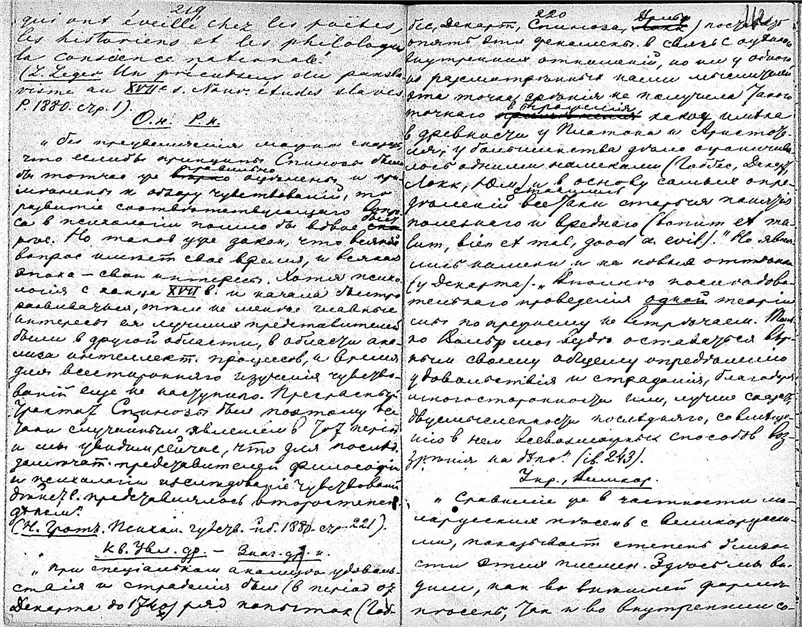 219
qui ont éveillé chez les poètes,
les historiens et les philologues
la conscience nationale."
(L. Leger Un précurseur du pansla-
visme au XVII s. Nouv. études slaves
P. 1880. стр. 1).
„ без преувеличения можно сказать,
что еслибы принципы Спинозы были
бы тотчас же правильно оценены и при-
менены к обзору чувствований, то
развитие соответствующего
са в психологии пошло бы вдвое
рое. Но таков уже закон, что всякий
вопрос имеет свое время, и всякая
эпоха – свои интересы. Хотя психо-
логія с конца XVII в. и начала быстро
развиваться, тем не менее главные
интересы ея лучших представителей
были в другой области, в области ана-
лиза интеллект. процессов, и время
для всесторонняго изучения чувство-
ваний еще не наступило. Прекрасный
трактат Спинозы был поэтому
случайным явлением в тот период
и мы увидим сейчас, что для
представителей философіи
и психологіи исследование чувствований
представлялось второстепен.
делом."
(Н. Грот. Психол. чувств. 1880 стр. 221).
„ При специальном анализе удоволь-
ствия и страдания был (в період от
Декарта до 1740) ряд попыток (Гоб-
220
бес, Декарт, Спиноза,
опять эти феномены в связь с
внутренних отношений, но ни у одного
из разсмотренных нами мыслителей
эта точка зрения не получила такого
точного выражения какое имела
в древности у Платона и Аристоте-
ля; у большинства дело ограничи-
лось одними намеками (Гоббес, Декарт
Локк, Юм) и в основу самых опре-
делений всетаки старыя понятія
полезнаго и вреднаго (bonum et ma-
lum, bien et mal, good & evil)." Но яви-
лись намеки и на новые оттенки
(у Декарта). „ Вполне последова-
тельнаго проведения одной теоріи
мы по прежнему не встречаем.
ко Вольф мог будто оставаться вер-
ным своему общему определению
удовольствія и страдания, благодаря
многосторонности или, лучше сказать
двусмысленности последняго, совмеще-
нію в нем всевозможных способов воз-
зрения на дело." (ib. 243).
Укр., Великор.
„ Сравнение же в частности ма-
лорусския песень с великорусски-
ми, показывает степень близос-
ти этих племен. Здесь мы ви-
дим, как во внешней форме
песень, так и во внутреннем со-